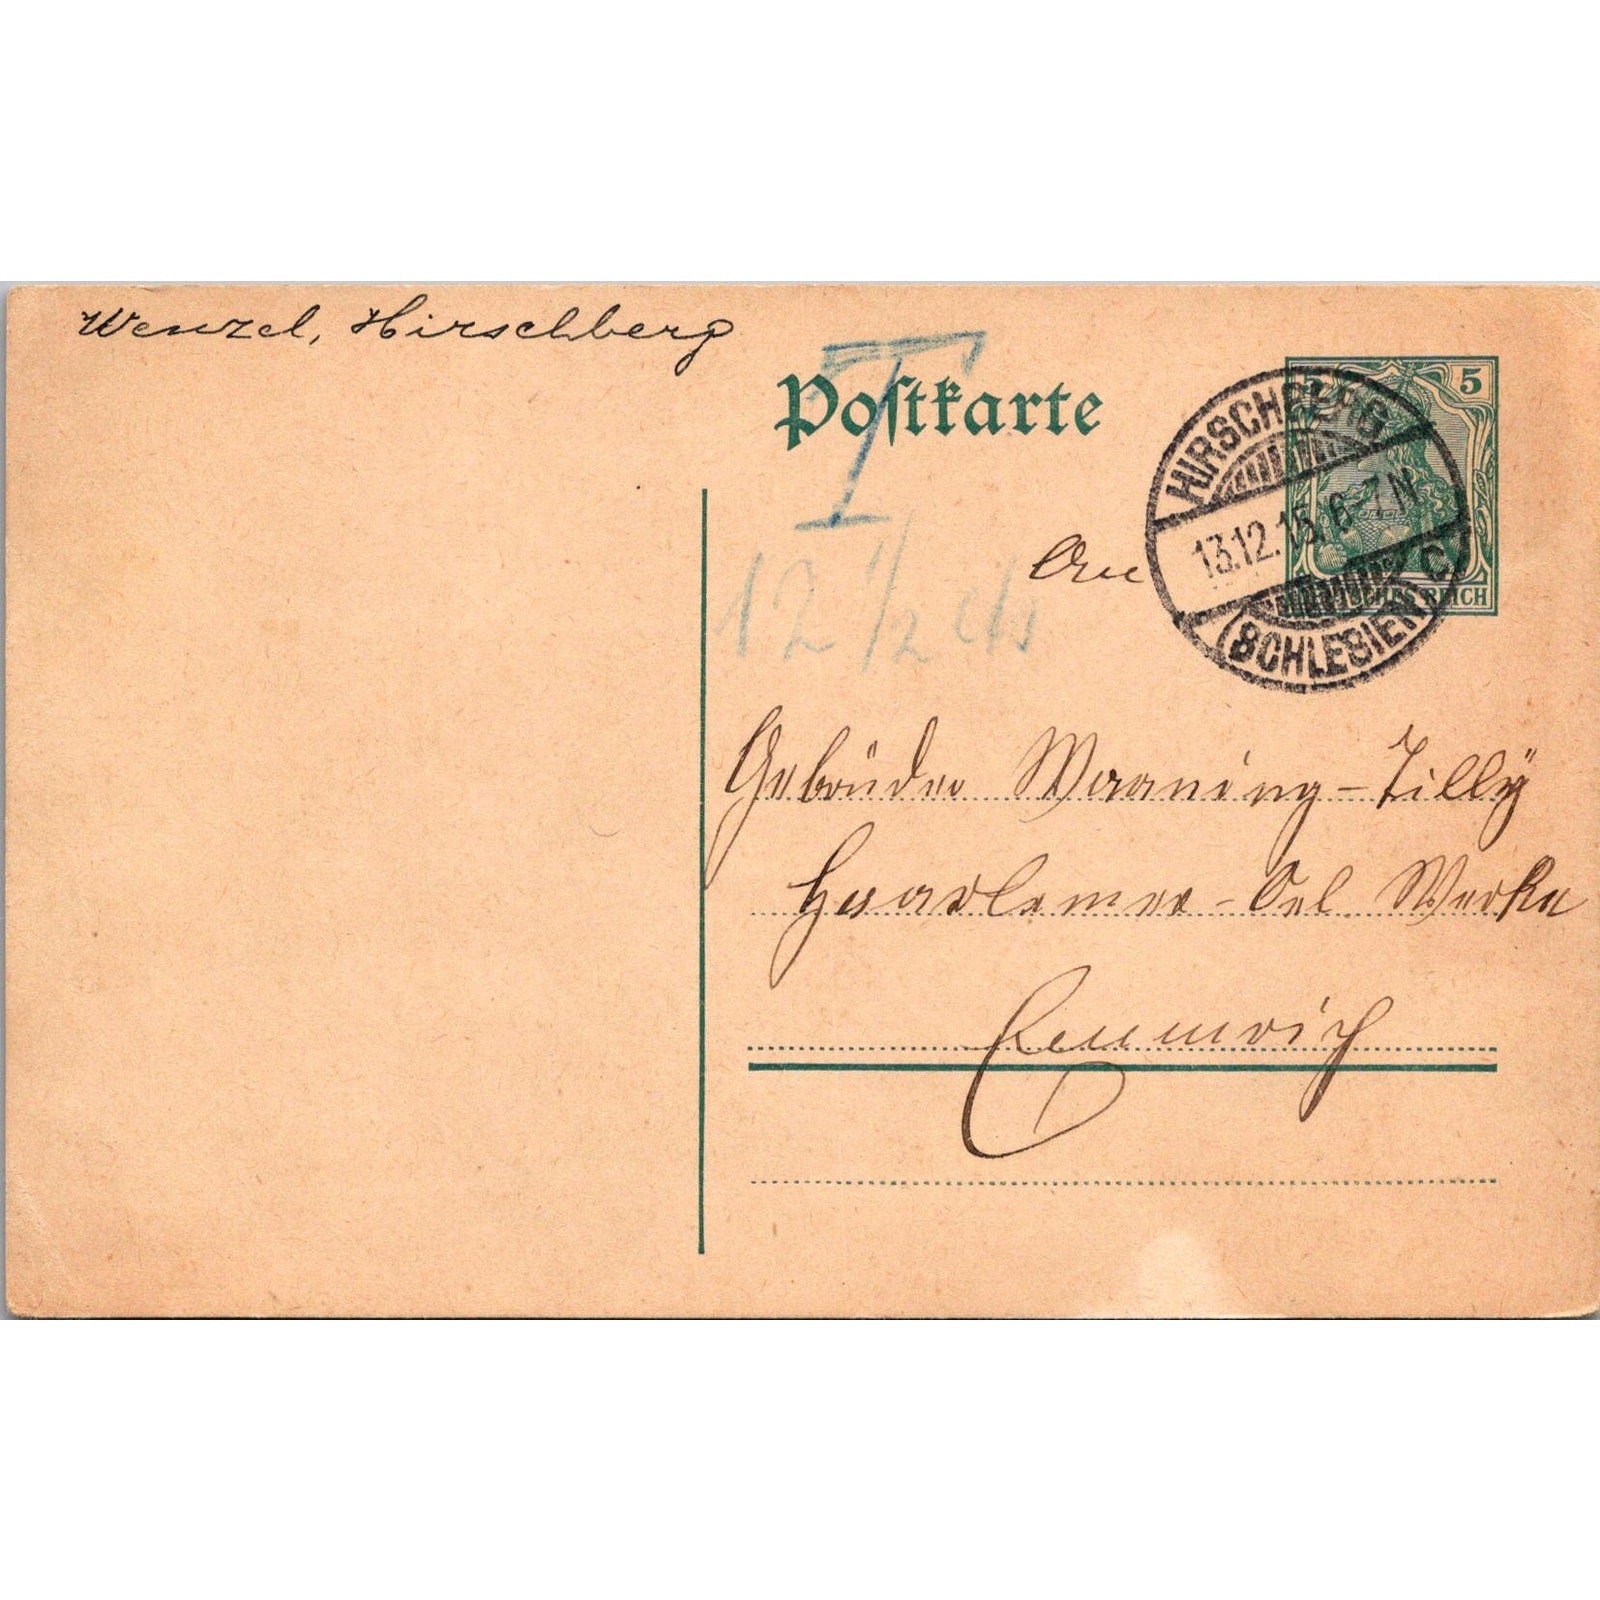 Wenzel, Hirschberg
Postkarte
T
12 1/2 cts
5
HIRSCHBERG
13.12.15. 6-7 N
C
(SCHLESIEN)
DEUTSCHES REICH
An
Gebrüder Waaning-Tilly
Haarlemer-Oel Werke
Emmrich